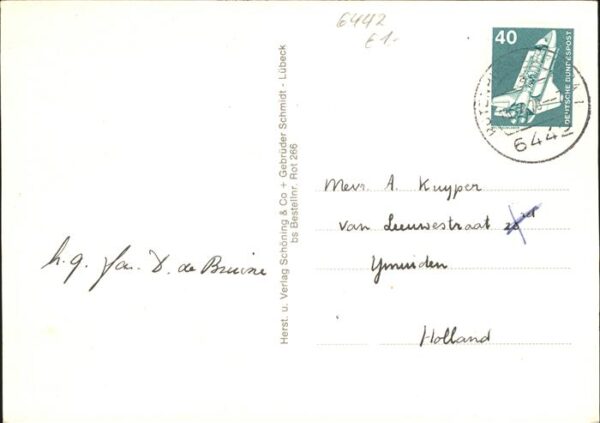 6442
£1-
40
DEUTSCHE BUNDESPOST
6442
Herst. u. Verlag Schöning & Co + Gebrüder Schmidt - Lübeck
bs Bestellnr. Rot 266
Mevr. A. Kuyper
van Leeuwestraat
Ymuiden
Holland
h.g. fam. D. de Bruine